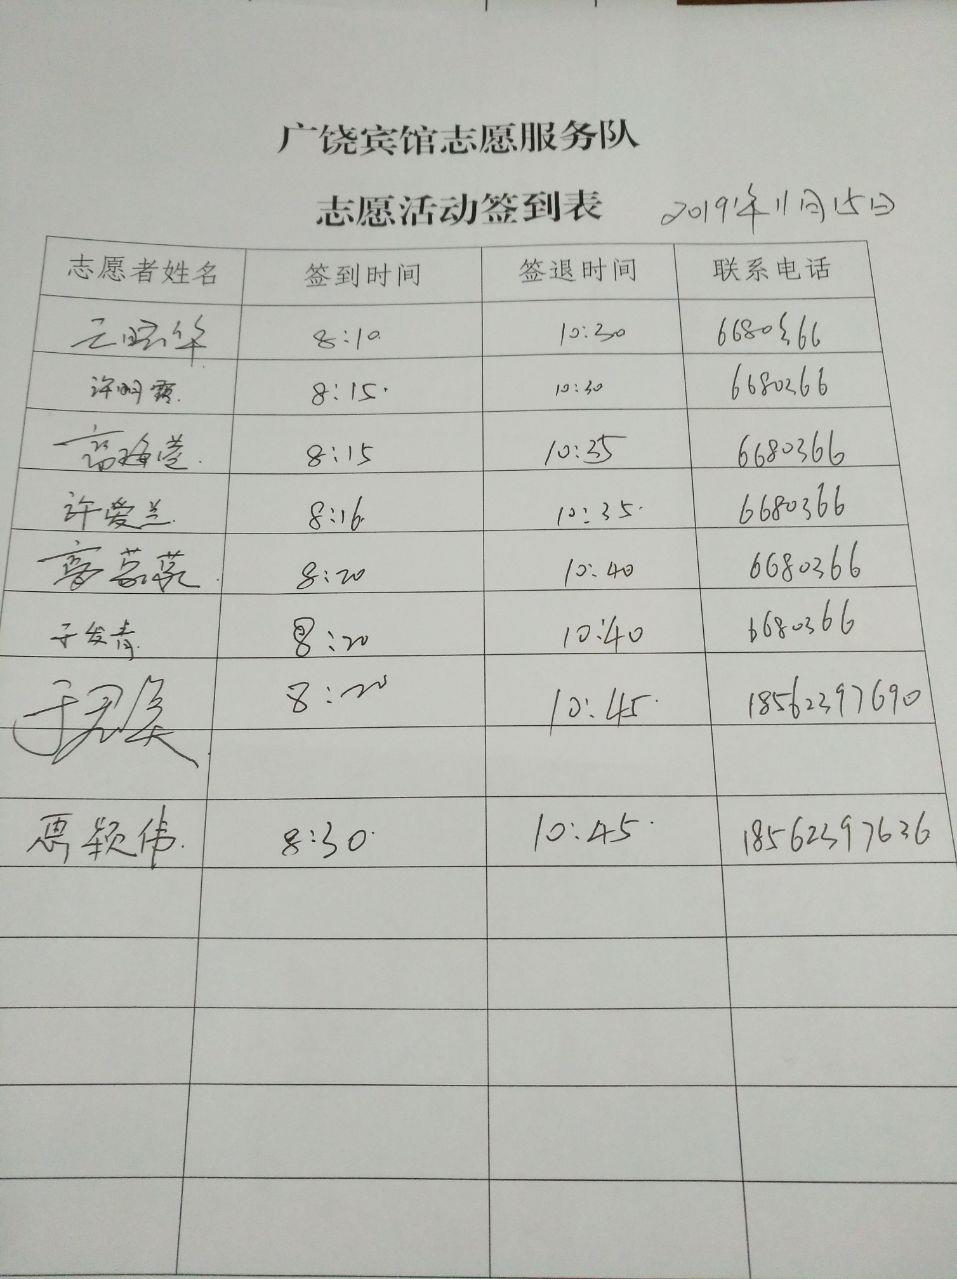 广饶宾馆志愿服务队
志愿活动签到表 2019年11月15日
志愿者姓名 签到时间 签退时间 联系电话
8:10 10:30 6680366
许明霞 8:15 10:30 6680366
高 8:15 10:35 6680366
许爱兰 8:16 10:35 6680366
8:20 10:40 6680366
于发青 8:20 10:40 6680366
于 8:20 10:45 18562397690
颖伟 8:30 10:45 18562397636